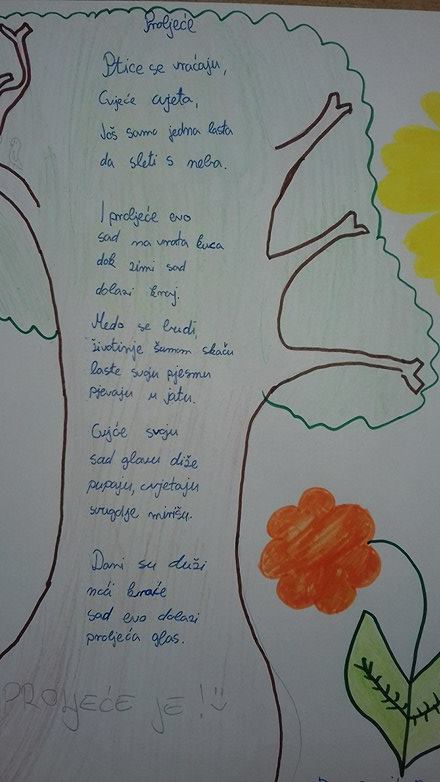 Proljeće
Ptice se vraćaju,
Cvjeće cvjeta,
Još samo jedna lasta
da sleti s neba.
I proljeće evo
sad na vrata kuca
dok zimi sad
dolazi kraj.
Medo se budi,
životinje šumom skaču
laste svoju pjesmu
pjevaju u jatu.
Cvjće svoju
sad glavu diže
pupaju, cvjetaju
svugdje mirišu.
Dani su duži
noći kraće
sad evo dolazi
proljeća glas.
PROLJEĆE JE !